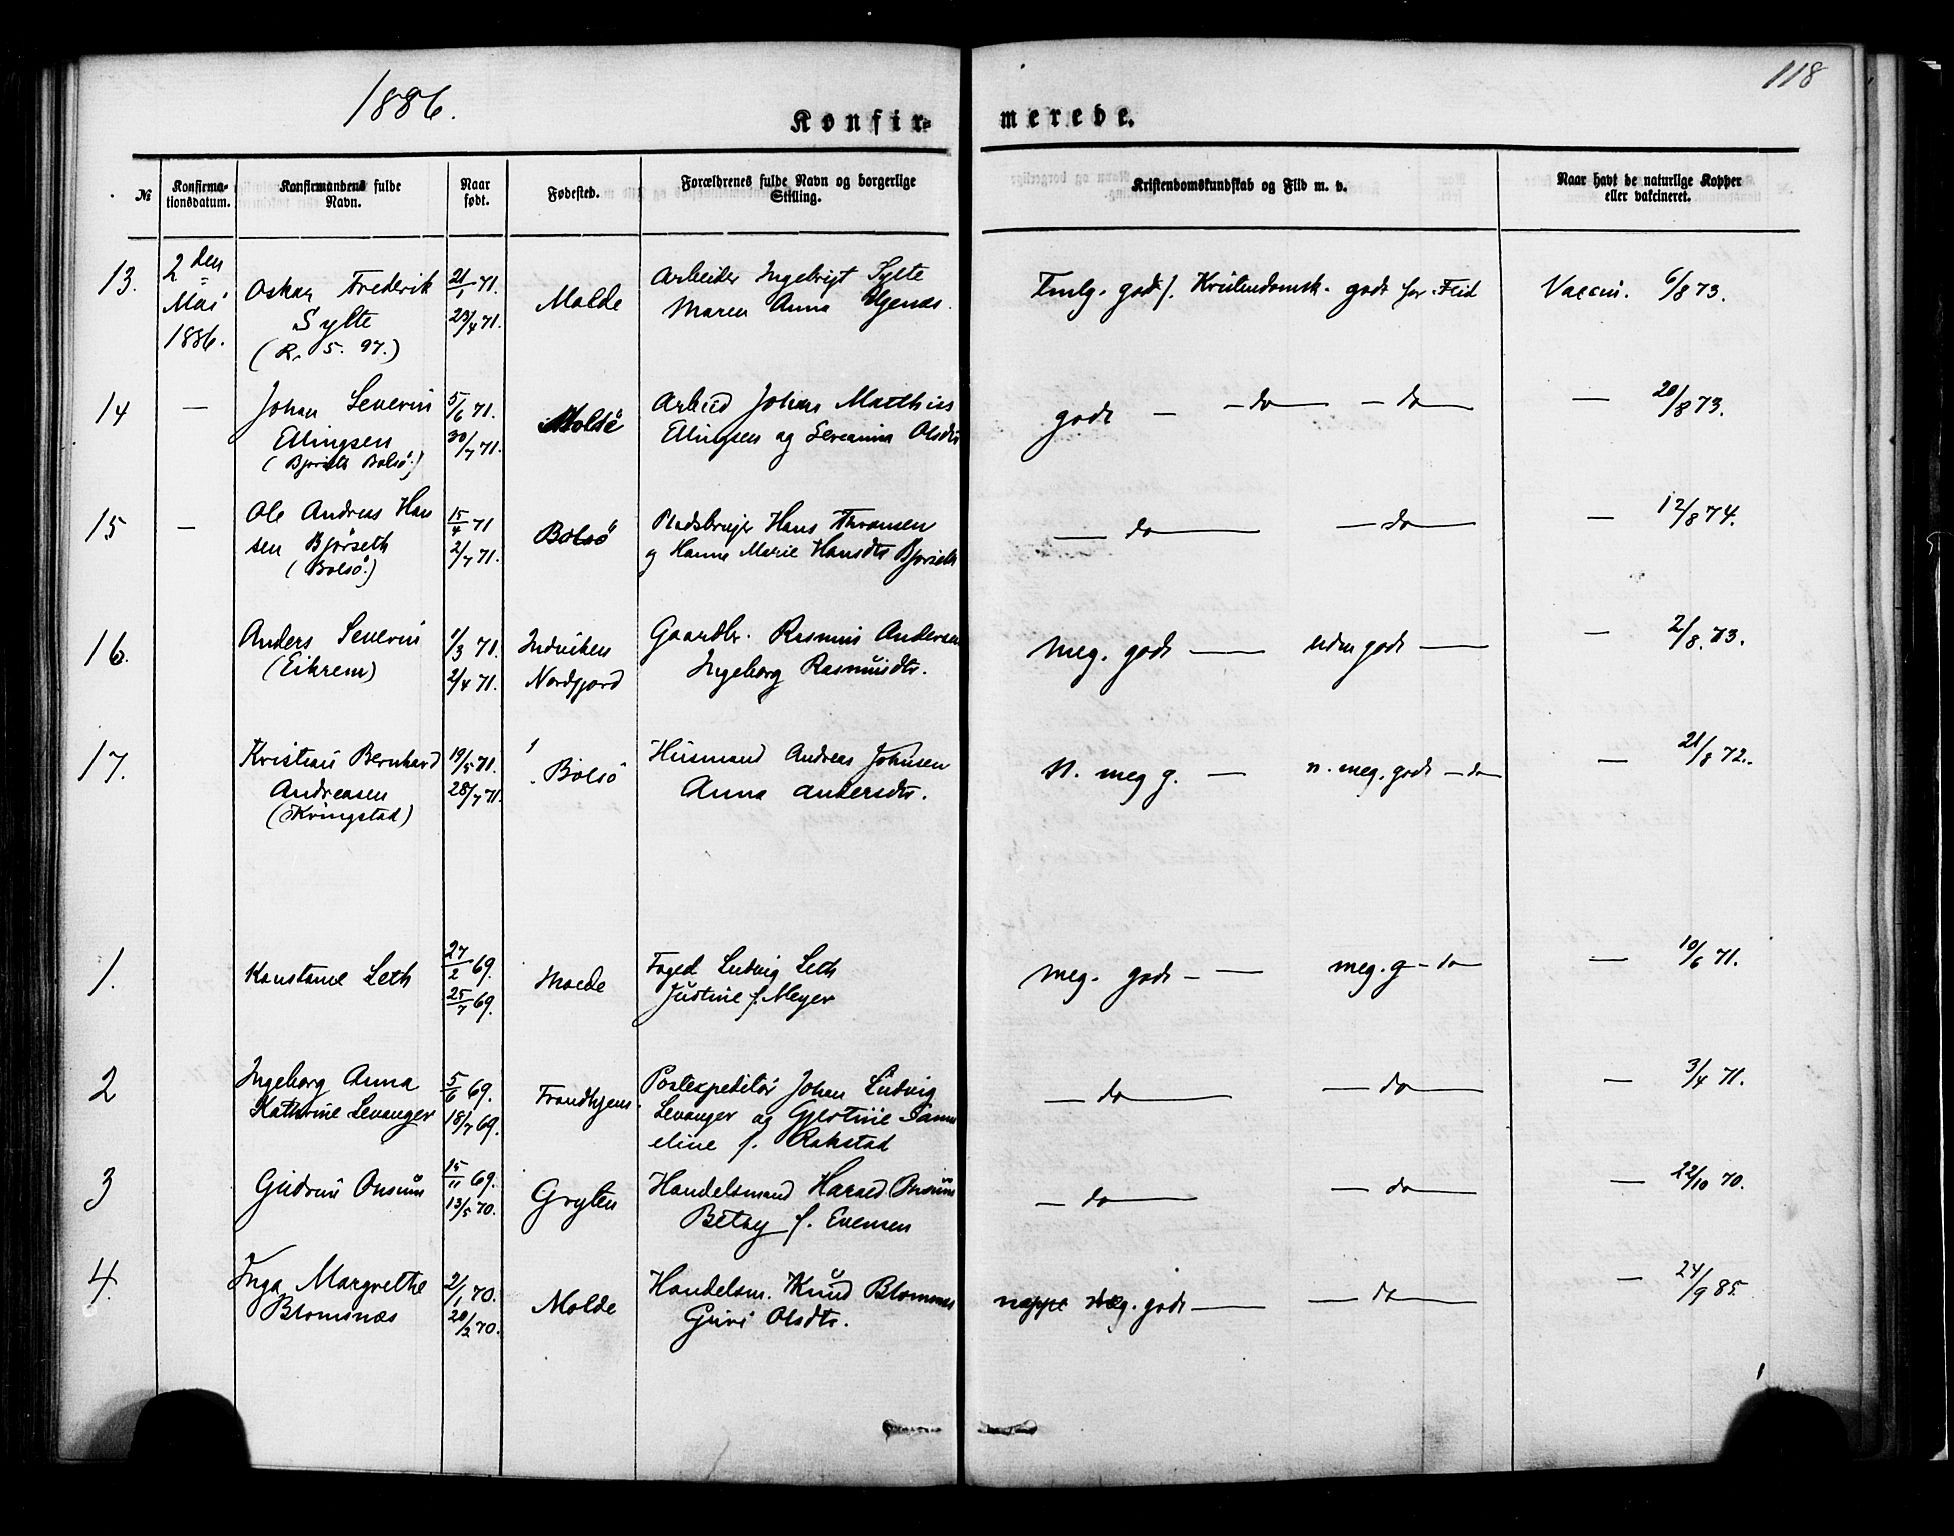 118
1886.
Konfirmerede.
№
Konfirmationsdatum.
Konfirmandens fulde Navn.
Naar født.
Fødested.
Forældrenes fulde Navn og borgerlige Stilling.
Kristendomskundskab og Flid m. v.
Naar havt de naturlige Kopper eller vakcineret.
13. 2den Mai 1886.
Oskar Frederik
Sylte
(R. 5. 97.)
21/1 71.
23/4 71.
Molde
Arbeider Ingebrigt Sylte
Maren Anna
Tmlg. godt. Kristendomsk. godt for Flid
Vaccin. 6/8 73.
14 —
Johan Severin
Ellingsen
(Bjorseth Bolsö.)
5/6 71.
30/7 71.
Molde
Arbeid Johan Matthias
Ellingsen og Olsdtr
godt — — do — — do —
— 20/8 73.
15 —
Ole Andreas Han
sen Bjørseth
(Bolsö.)
15/4 71
2/7 71.
Bolsö
Pladsbruger Hans
og Hanna Marie Hansdtr Bjorseth
— do — — do —
— 12/8 74.
16.
Anders Severin
(Eikrem)
1/3 71.
2/4 71.
Indviken
Nordfjord
Gaardbr. Rasmus Andersen
Ingeborg Rasmusdtr.
Meg. godt — udm godt —
— 2/8. 73.
17.
Kristian Bernhard
Andreasen
(Kringstad)
19/5 71.
28/7 71.
Bolsö
Husmand Andreas Johnsen
Anna Andersdtr.
N. meg g. — n. meg. godt — do
— 21/8 72.
1.
Konstanse Leth
27/2 69.
25/7 69.
Molde
Foged Ludvig Leth
Justine f. Meyer
meg. godt — — meg. g — do
— 10/6 71.
2
Ingeborg Anna
Kathrine Levanger
5/6 69.
18/7 69.
Trondhjem
Postexpeditør Johan Ludvig
Levanger og Gjertine Sam
eline f. Rokstad
— do — — do —
— 3/4 71.
3
Gudrun Onsum
15/11 69.
13/5 70.
Gryten
Handelsmand Harald Onsum
Betsy f. Evensen
— do — — do —
— 22/10 70.
4.
Inga Margrethe
Blomsnæs
2/1 70.
20/2 70.
Molde
Handelsm. Knud Blomsnes
Guri Olsdtr.
neppe meg. godt — — do —
— 24/9 85.